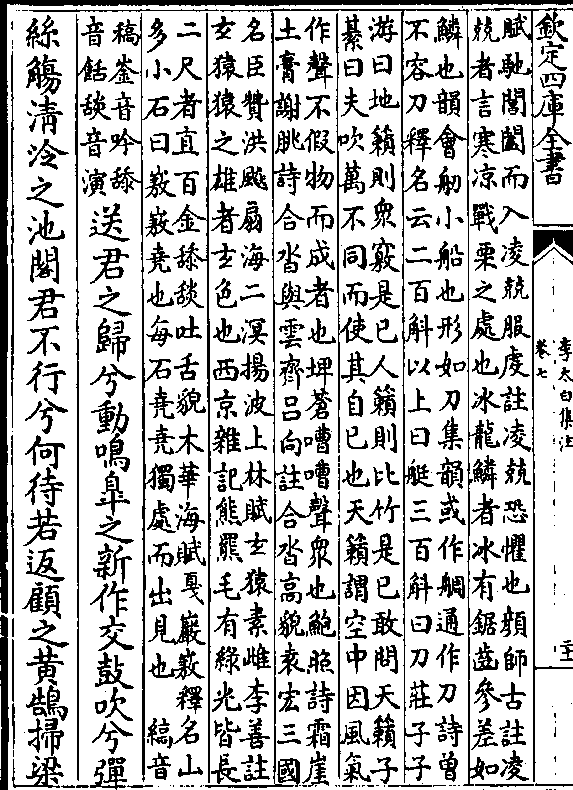 欽定四庫全書
李太白集注
卷七
二十二
賦馳閶闔而入凌兢服虔註凌兢恐懼也顔師古註凌
兢者言寒凉戰栗之處也氷龍鱗者氷有鋸齒參差如
鱗也韻會舠小船也形如刀集韻或作䑠通作刀詩曾
不容刀釋名云二百斛以上曰艇三百斛曰刀莊子子
游曰地籟則衆竅是已人籟則比竹是已敢問天籟子
綦曰夫吹萬不同而使其自已也天籟謂空中因風氣
作聲不假物而成者也埤蒼嘈嘈聲衆也鮑照詩霜崖
土膏謝朓詩合沓與雲齊吕向註合沓高貌袁宏三國
名臣贊洪飈扇海二溟揚波上林賦玄猿素雌李善註
玄猿猿之雄者玄色也西京雜記熊羆毛有緑光皆長
二尺者直百金舕舕吐舌貌木華海賦戛巖嶅釋名山
多小石曰嶅嶅堯也每石堯堯獨處而出見也 縞音
稿崟音吟舕
音餂舕音演
送君之歸兮動鳴臯之新作交鼓吹兮彈
絲觴淸泠之池閣君不行兮何待若返顧之黄鵠掃梁